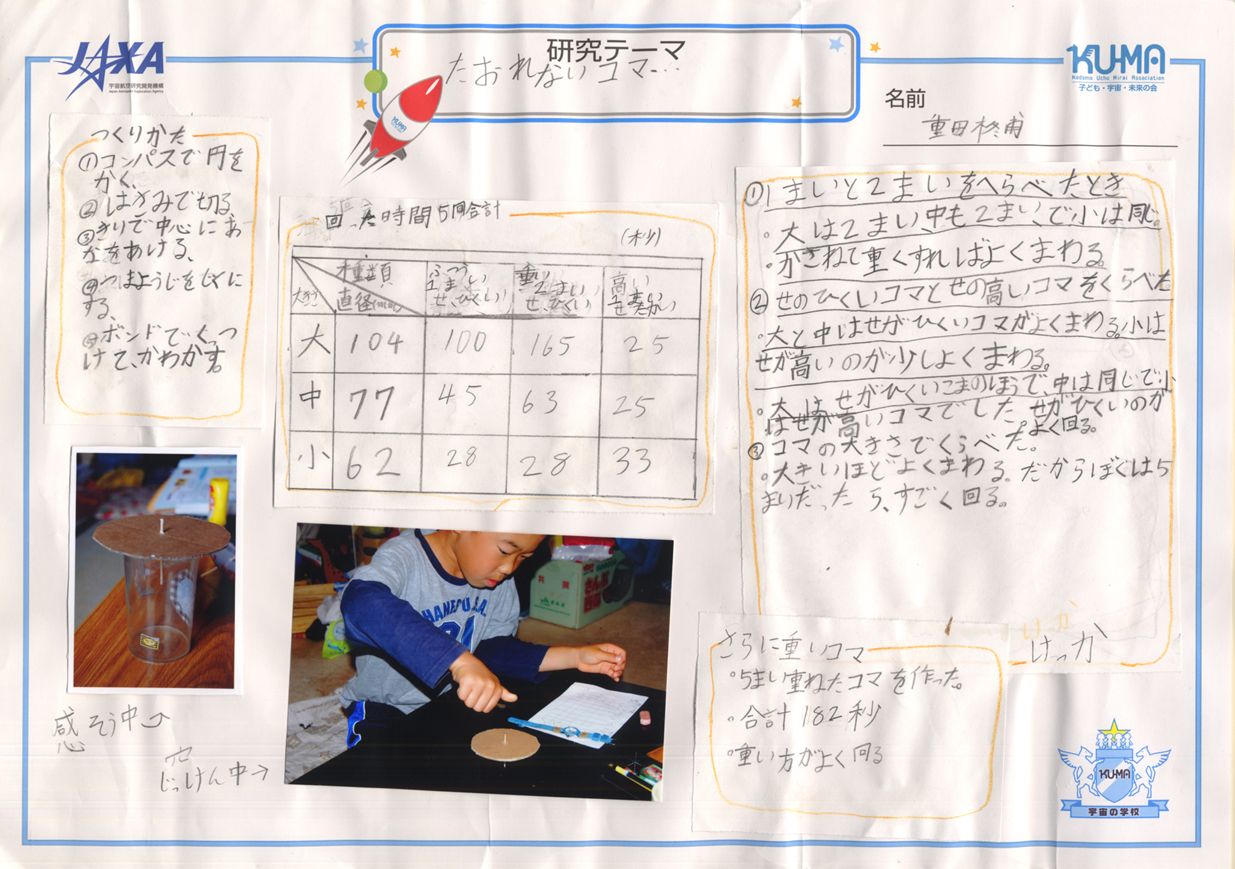 JAXA
宇宙航空研究開発機構
Japan Aerospace Exploration Agency
研究テーマ
たおれないコマ…
KU-MA
Kodomo Uchu Mirai Association
子ども・宇宙・未来の会
名前
重田柊甫
つくりかた
①コンパスで円を
かく、
②はさみで切る
③きりで中心にあ
なをあける、
④つまようじをじくに
する、
⑤ボンドでくっつ
けて、かわかす。
回った時間5回合計
(秒)
種類
大きさ
直径(mm)
ふつう
1まい
せ、ひくい
重い
2まい
せ、ひくい
高い
1まい
せ、たかい
大 104 100 165 25
中 77 45 63 25
小 62 28 28 33
①1まいと2まいをくらべたとき
・大は2まい、中も2まいで小は同じ。
・かさねて重くすればよくまわる。
②せのひくいコマとせの高いコマをくらべた
・大と中はせがひくいコマがよくまわる。小は
せが高いのが少しよくまわる。
・大はせがひくいこまのほうで、中は同じで小
はせが高いコマでした せがひくいのが
よく回る。
③コマの大きさでくらべた。
・大きいほどよくまわる。だからぼくは5
まいだったら、すごく回る。
けっか
さらに重いコマ
・5まい重ねたコマを作った。
・合計182秒
・重い方がよく回る
感そう中
じっけん中→
KU-MA
KU-MA
宇宙の学校